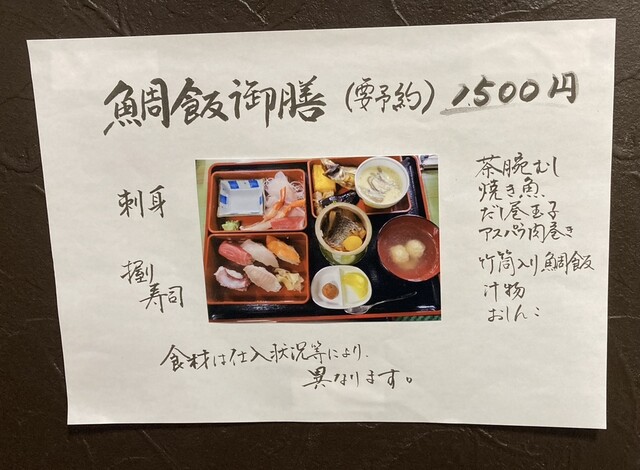 鯛飯御膳(要予約) 1,500円
刺身
握り
寿司
茶腕むし
焼き魚
だし巻玉子
アスパラ肉巻き
竹筒入り鯛飯
汁物
おしんこ
食材は仕入状況等により、
異なります。